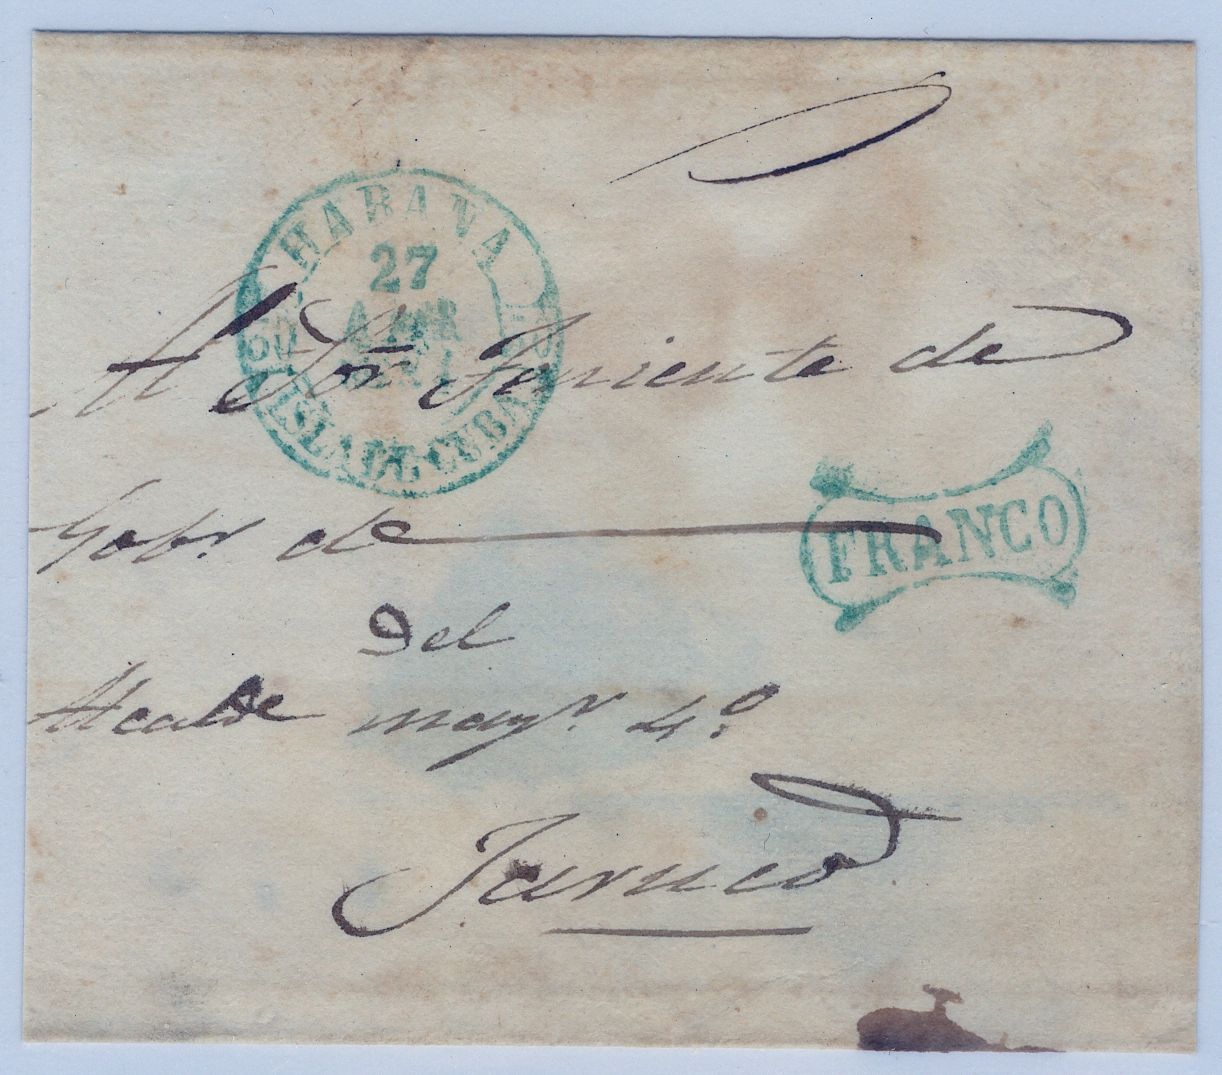 HABANA
27
ABR
ISLA DE CUBA
Al Sor. Teniente de
Gobr. de
FRANCO
Del
Alcalde mayr. 4º.
Jaruco